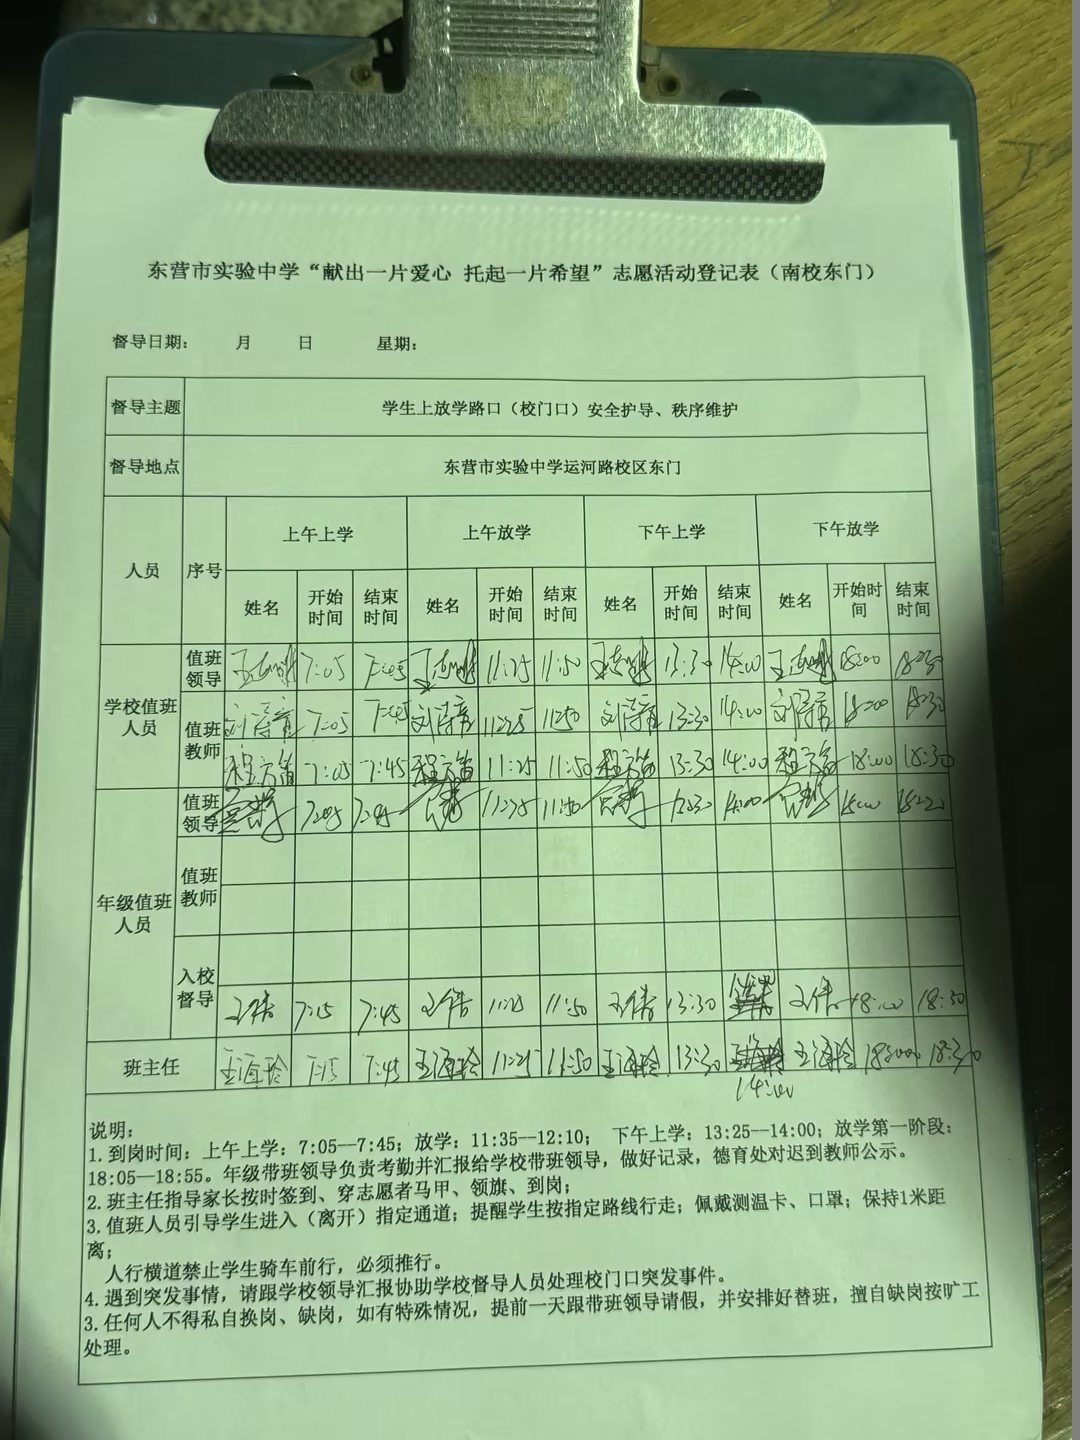 东营市实验中学“献出一片爱心 托起一片希望”志愿活动登记表（南校东门）
督导日期： 月 日 星期：
督导主题 学生上放学路口（校门口）安全护导、秩序维护
督导地点 东营市实验中学运河路校区东门
人员 序号 上午上学 上午放学 下午上学 下午放学
姓名 开始时间 结束时间 姓名 开始时间 结束时间 姓名 开始时间 结束时间 姓名 开始时间 结束时间
学校值班人员
值班领导 7:05 7:45 11:25 11:50 13:30 14:00 18:00 18:30
值班教师 7:05 7:45 11:25 11:50 13:30 14:00 18:00 18:30
7:05 7:45 11:25 11:50 13:30 14:00 18:00 18:30
年级值班人员
值班领导 7:05 7:45 11:25 11:50 13:30 14:00 18:00
值班教师
入校督导 7:15 7:45 11:25 11:50 13:30 18:00 18:30
班主任 7:15 7:45 11:25 11:50 13:30 18:00 18:30
14:00
说明：
1.到岗时间：上午上学：7:05--7:45；放学：11:35--12:10； 下午上学：13:25--14:00；放学第一阶段：
18:05--18:55。年级带班领导负责考勤并汇报给学校带班领导，做好记录，德育处对迟到教师公示。
2.班主任指导家长按时签到、穿志愿者马甲、领旗、到岗；
3.值班人员引导学生进入（离开）指定通道；提醒学生按指定路线行走；佩戴测温卡、口罩；保持1米距
离；
人行横道禁止学生骑车前行，必须推行。
4.遇到突发事情，请跟学校领导汇报协助学校督导人员处理校门口突发事件。
3.任何人不得私自换岗、缺岗，如有特殊情况，提前一天跟带班领导请假，并安排好替班，擅自缺岗按旷工
处理。